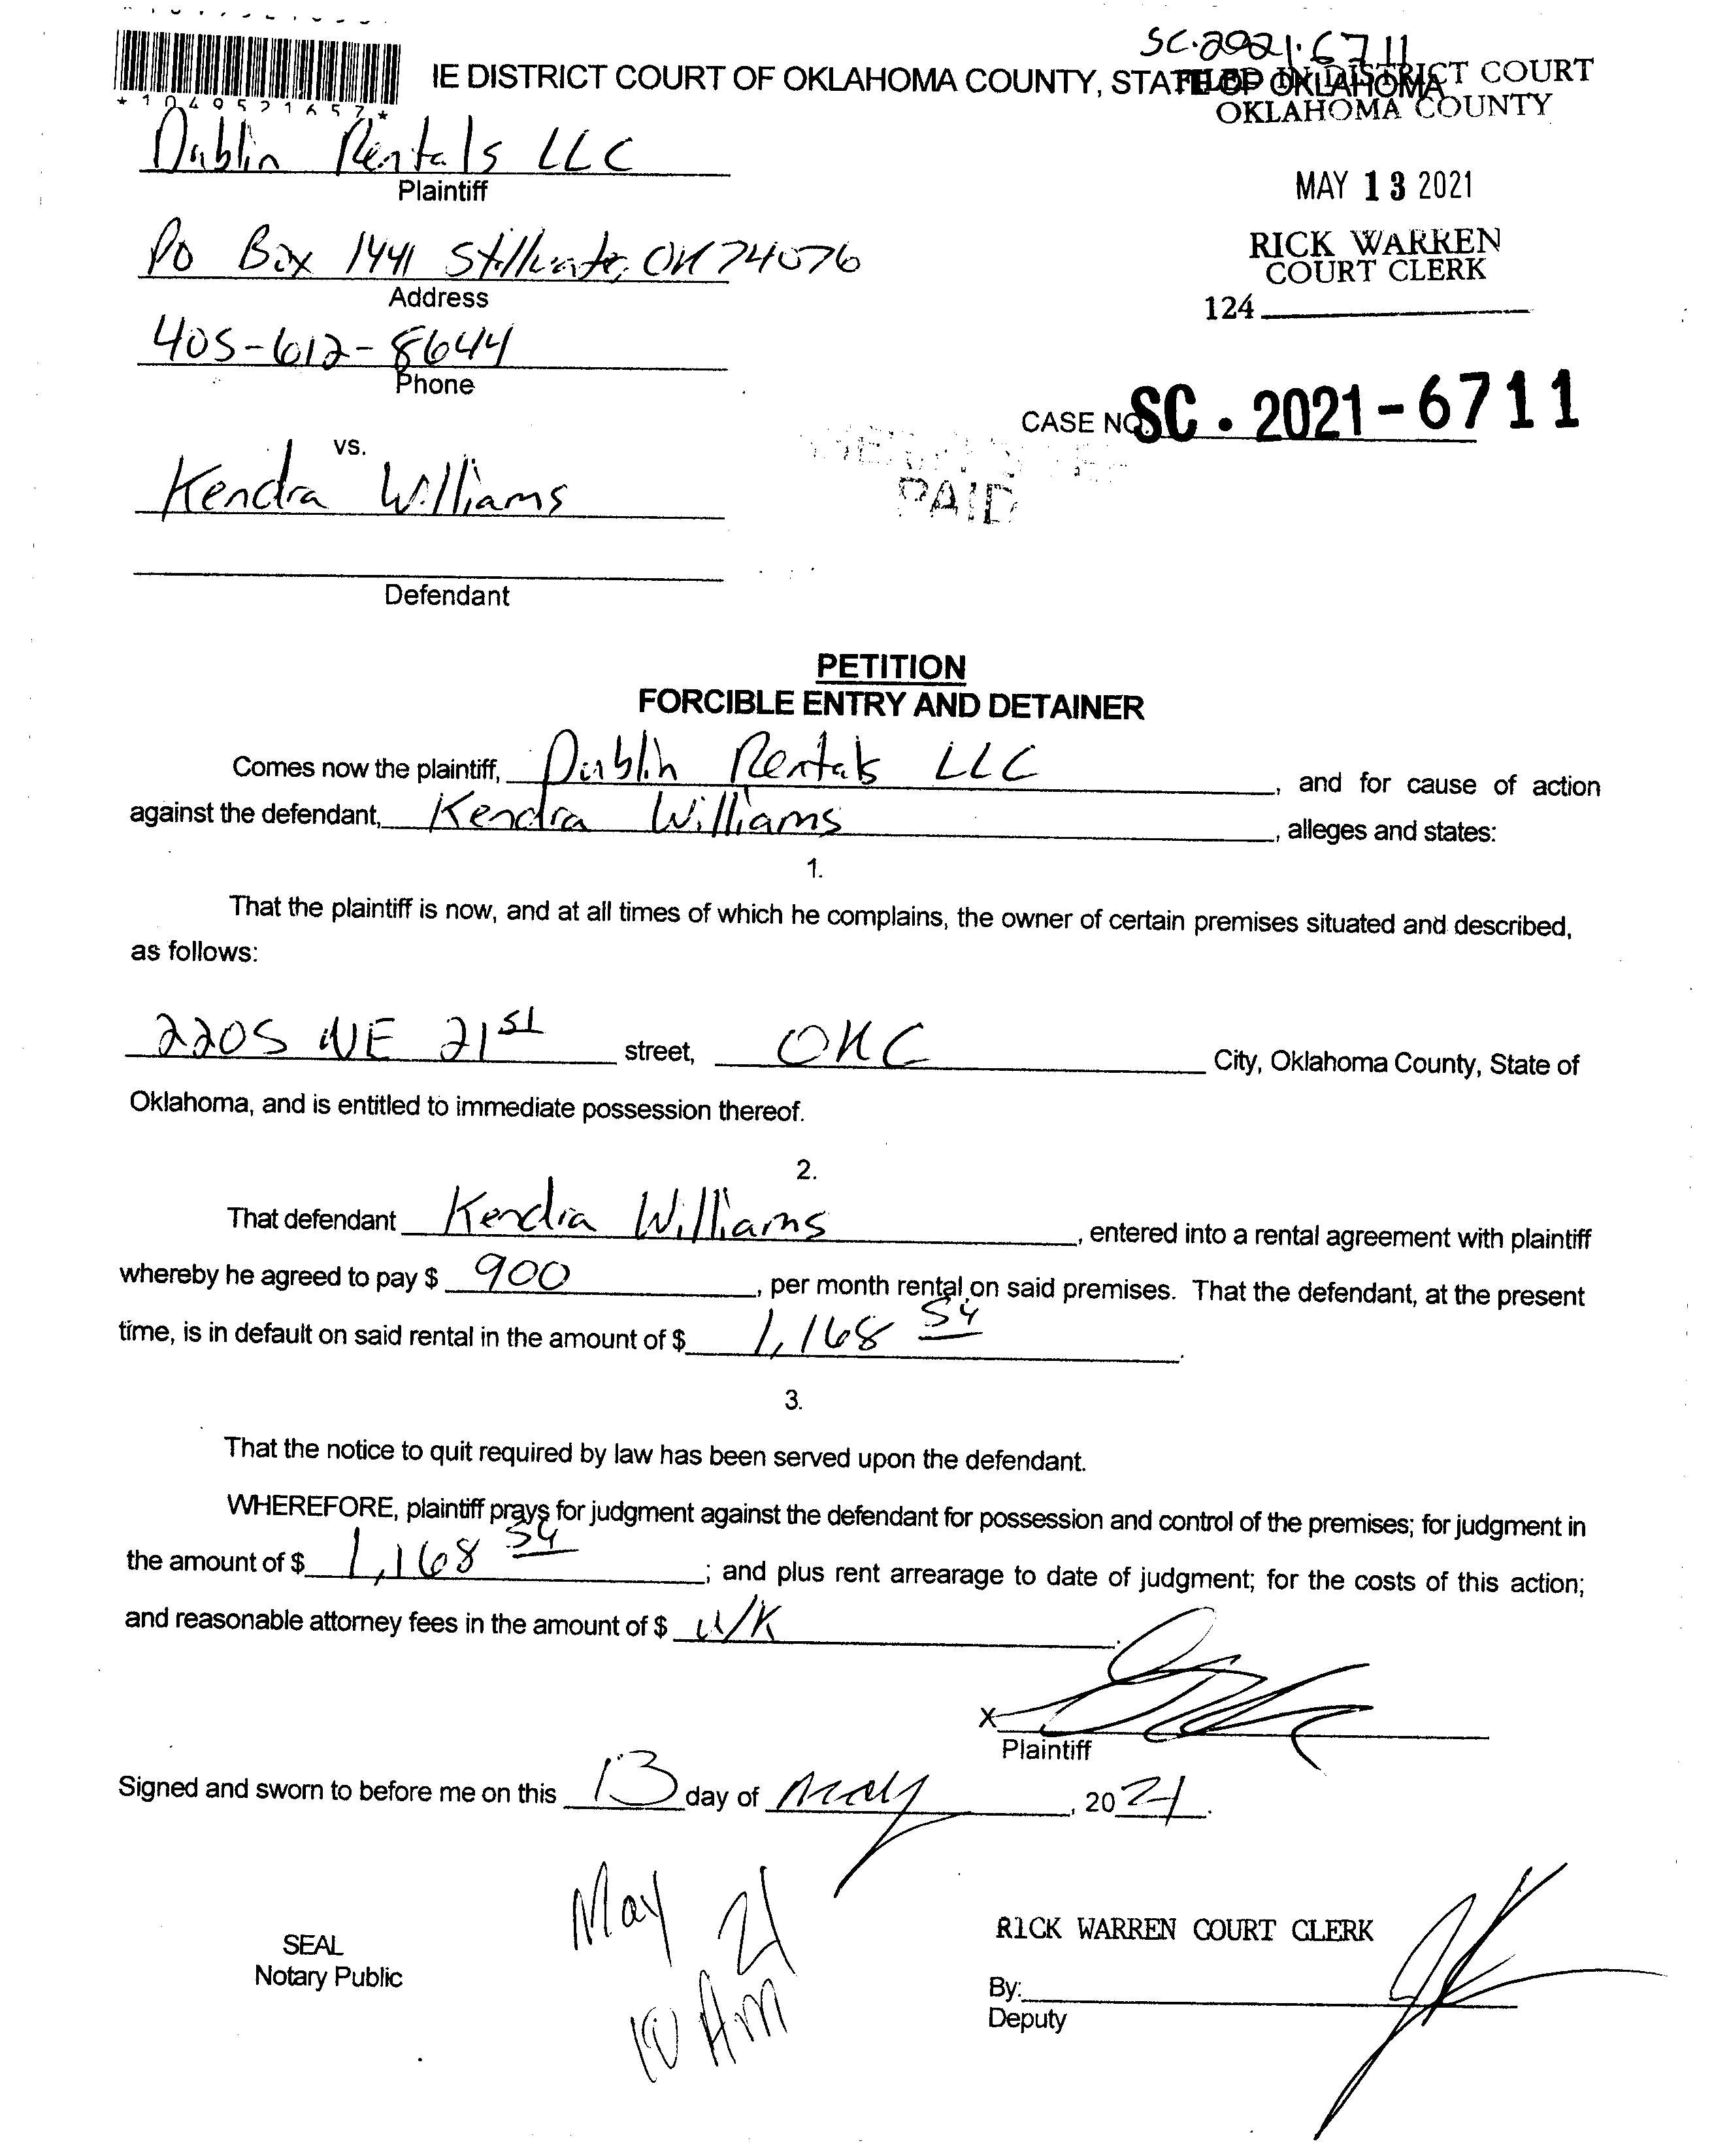 SC.2021.6711
IE DISTRICT COURT OF OKLAHOMA COUNTY, STATE OF OKLAHOMA
FILED IN DISTRICT COURT
OKLAHOMA COUNTY
*1049521657*
Dublin Rentals LLC
Plaintiff
MAY 13 2021
PO Box 1441 Stillwater, OK 74076
Address
RICK WARREN
COURT CLERK
124
405-612-8644
Phone
CASE NO. SC • 2021-6711
vs.
PAID
Kendra Williams
Defendant
PETITION
FORCIBLE ENTRY AND DETAINER
Comes now the plaintiff, Dublin Rentals LLC, and for cause of action
against the defendant, Kendra Williams, alleges and states:
1.
That the plaintiff is now, and at all times of which he complains, the owner of certain premises situated and described,
as follows:
2205 NE 21st street, OKC City, Oklahoma County, State of
Oklahoma, and is entitled to immediate possession thereof.
2.
That defendant Kendra Williams, entered into a rental agreement with plaintiff
whereby he agreed to pay $ 900, per month rental on said premises. That the defendant, at the present
time, is in default on said rental in the amount of $ 1,168 54.
3.
That the notice to quit required by law has been served upon the defendant.
WHEREFORE, plaintiff prays for judgment against the defendant for possession and control of the premises; for judgment in
the amount of $ 1,168 54; and plus rent arrearage to date of judgment; for the costs of this action;
and reasonable attorney fees in the amount of $ U/K.
X
Plaintiff
Signed and sworn to before me on this 13 day of May, 2021.
May 21
10 AM
SEAL
Notary Public
RICK WARREN COURT CLERK
By:
Deputy